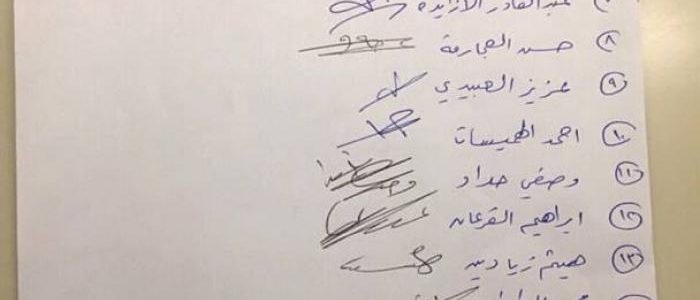 عبد القادر الأزايده
٨ حسن العجارمة
٩ عزيز العبيدي
١٠ احمد الهميسات
١١ وصفي حداد
١٢ ابراهيم القرعان
١٣ هيثم زيادين